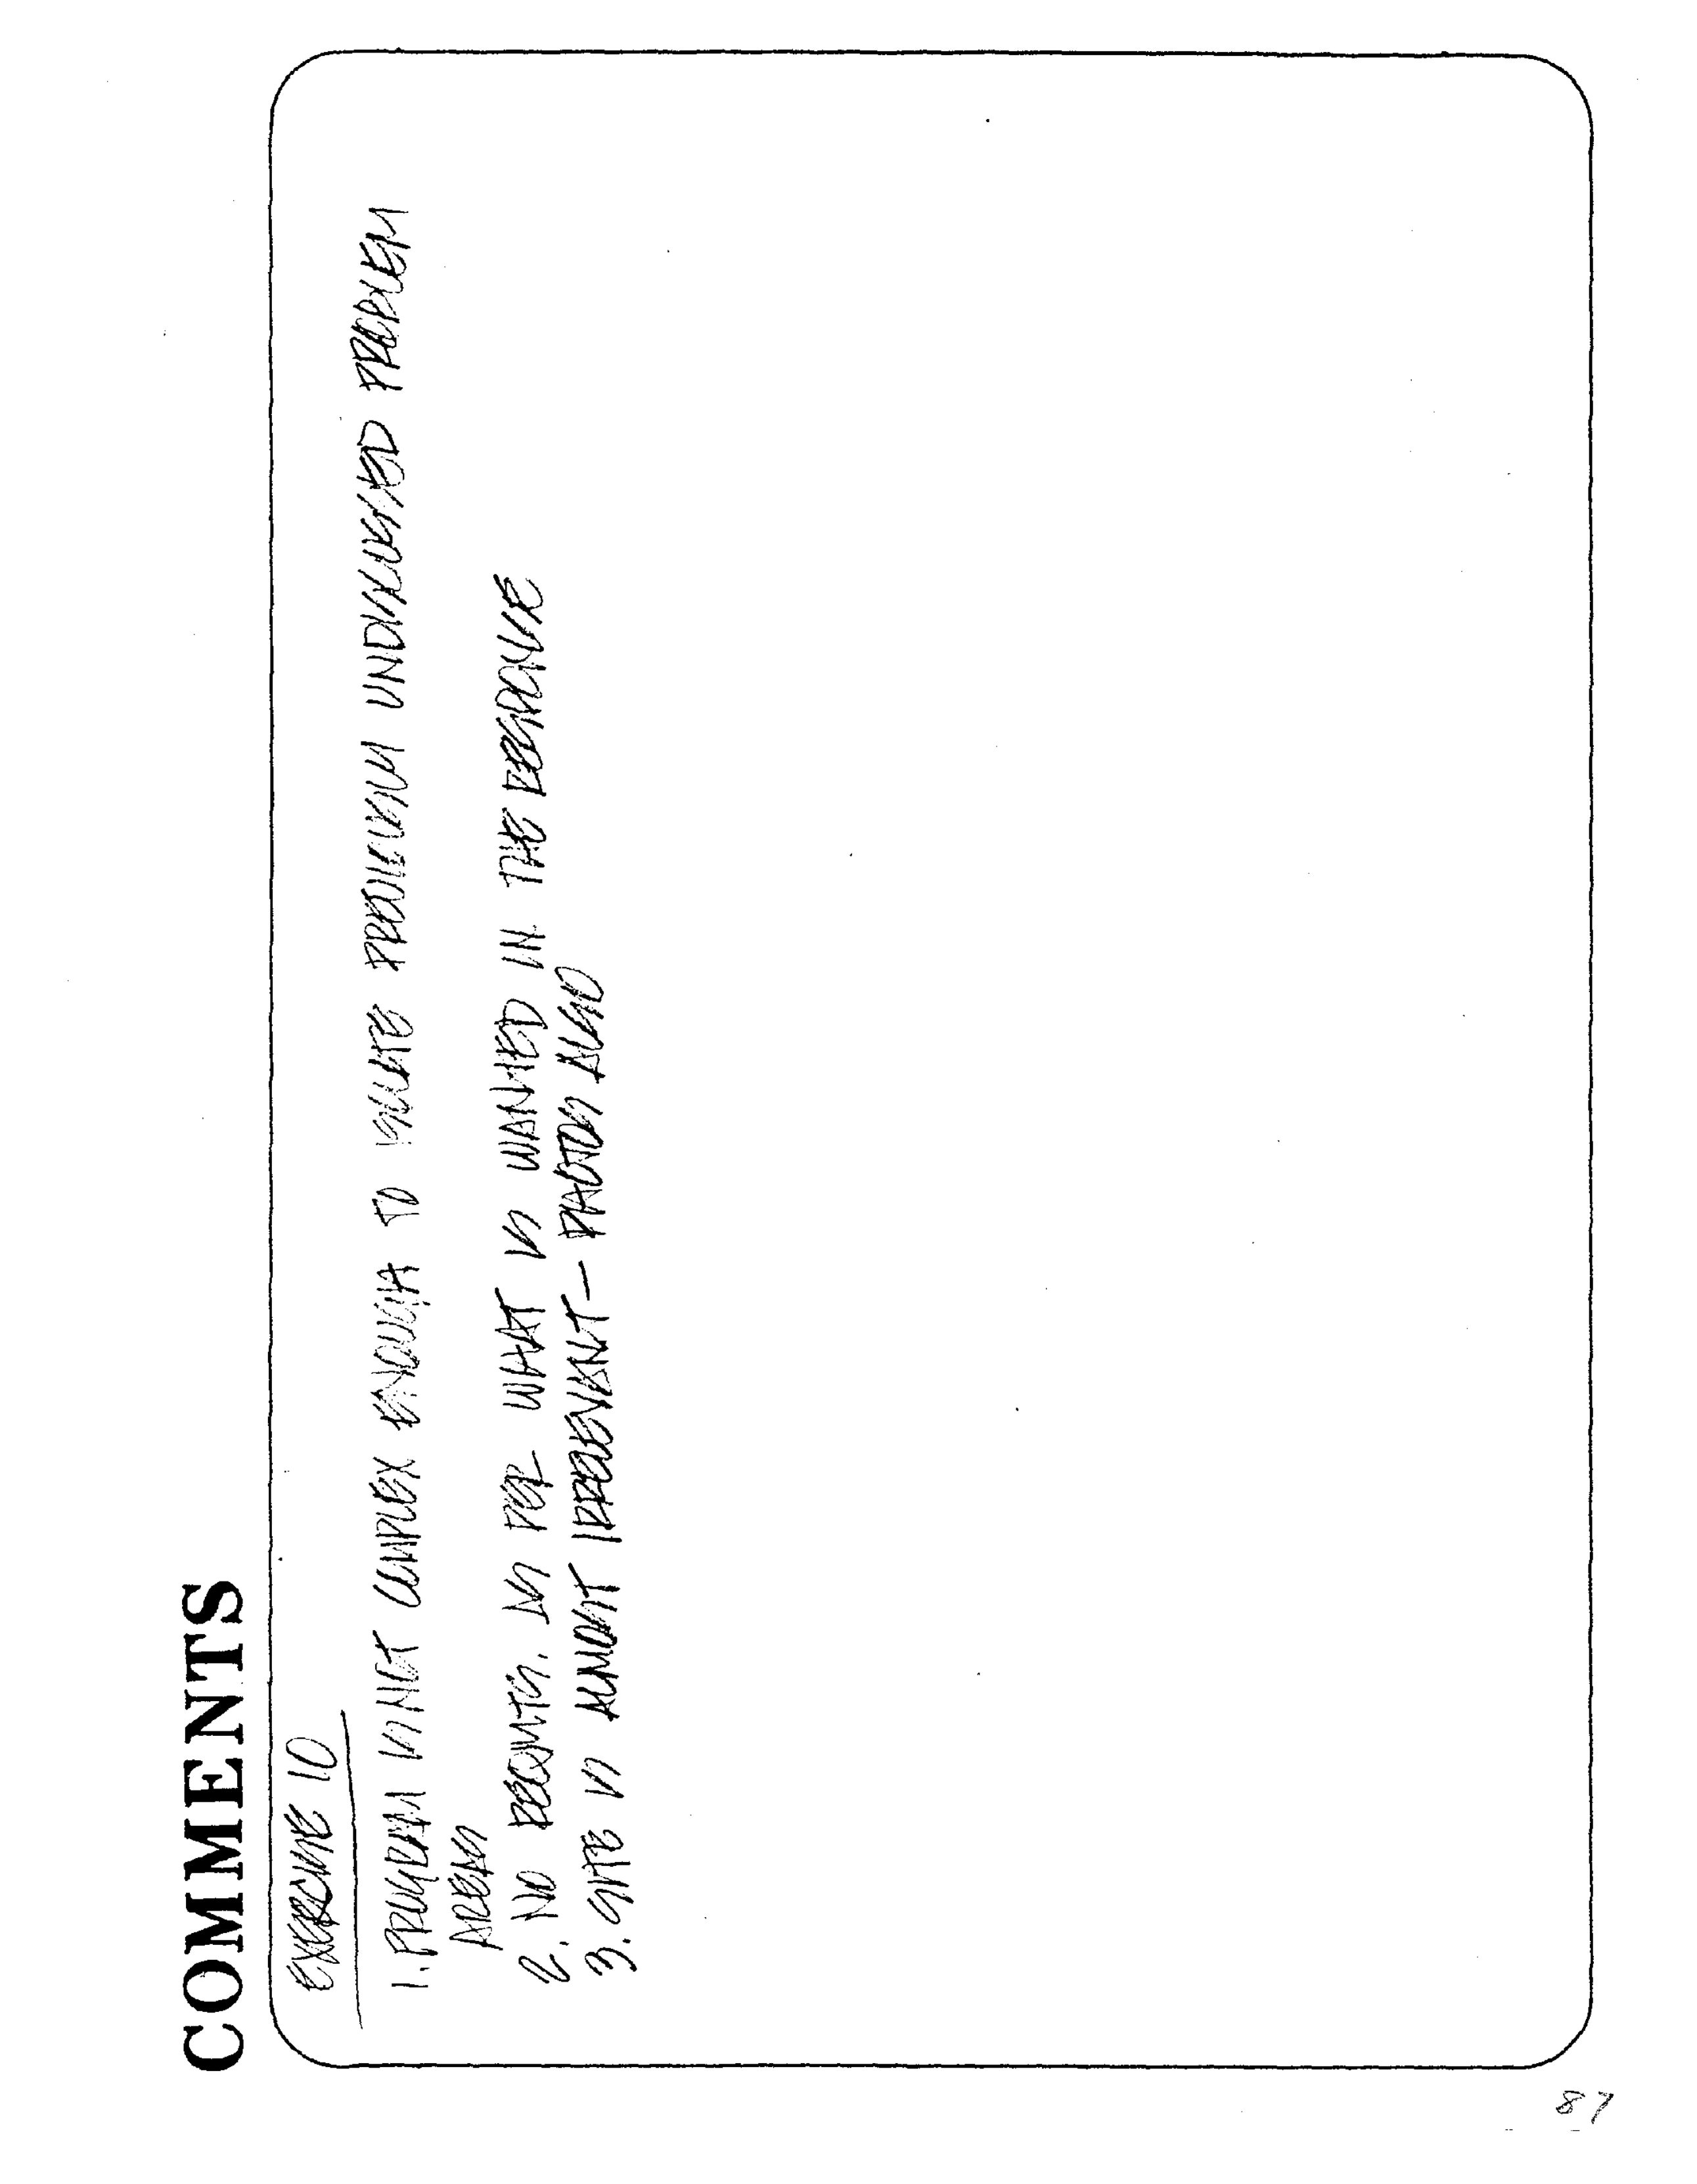 COMMENTS
EXERCISE 10
1. PROGRAM IS NOT COMPLEX ENOUGH TO ISOLATE PREVIOUSLY UNDISCLOSED PROBLEM
AREAS
2. NO REQMTS. AS PER WHAT IS WANTED IN THE RESPONSE
3. SITE IS ALMOST IRRELEVANT — PHOTOS ALSO
87